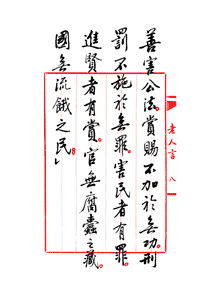 善害公法賞賜不加於無功刑
罰不施於無罪。害民者有罪。
進賢者有賞。官無腐蠹之藏。
國無流餓之民」
老人言 八